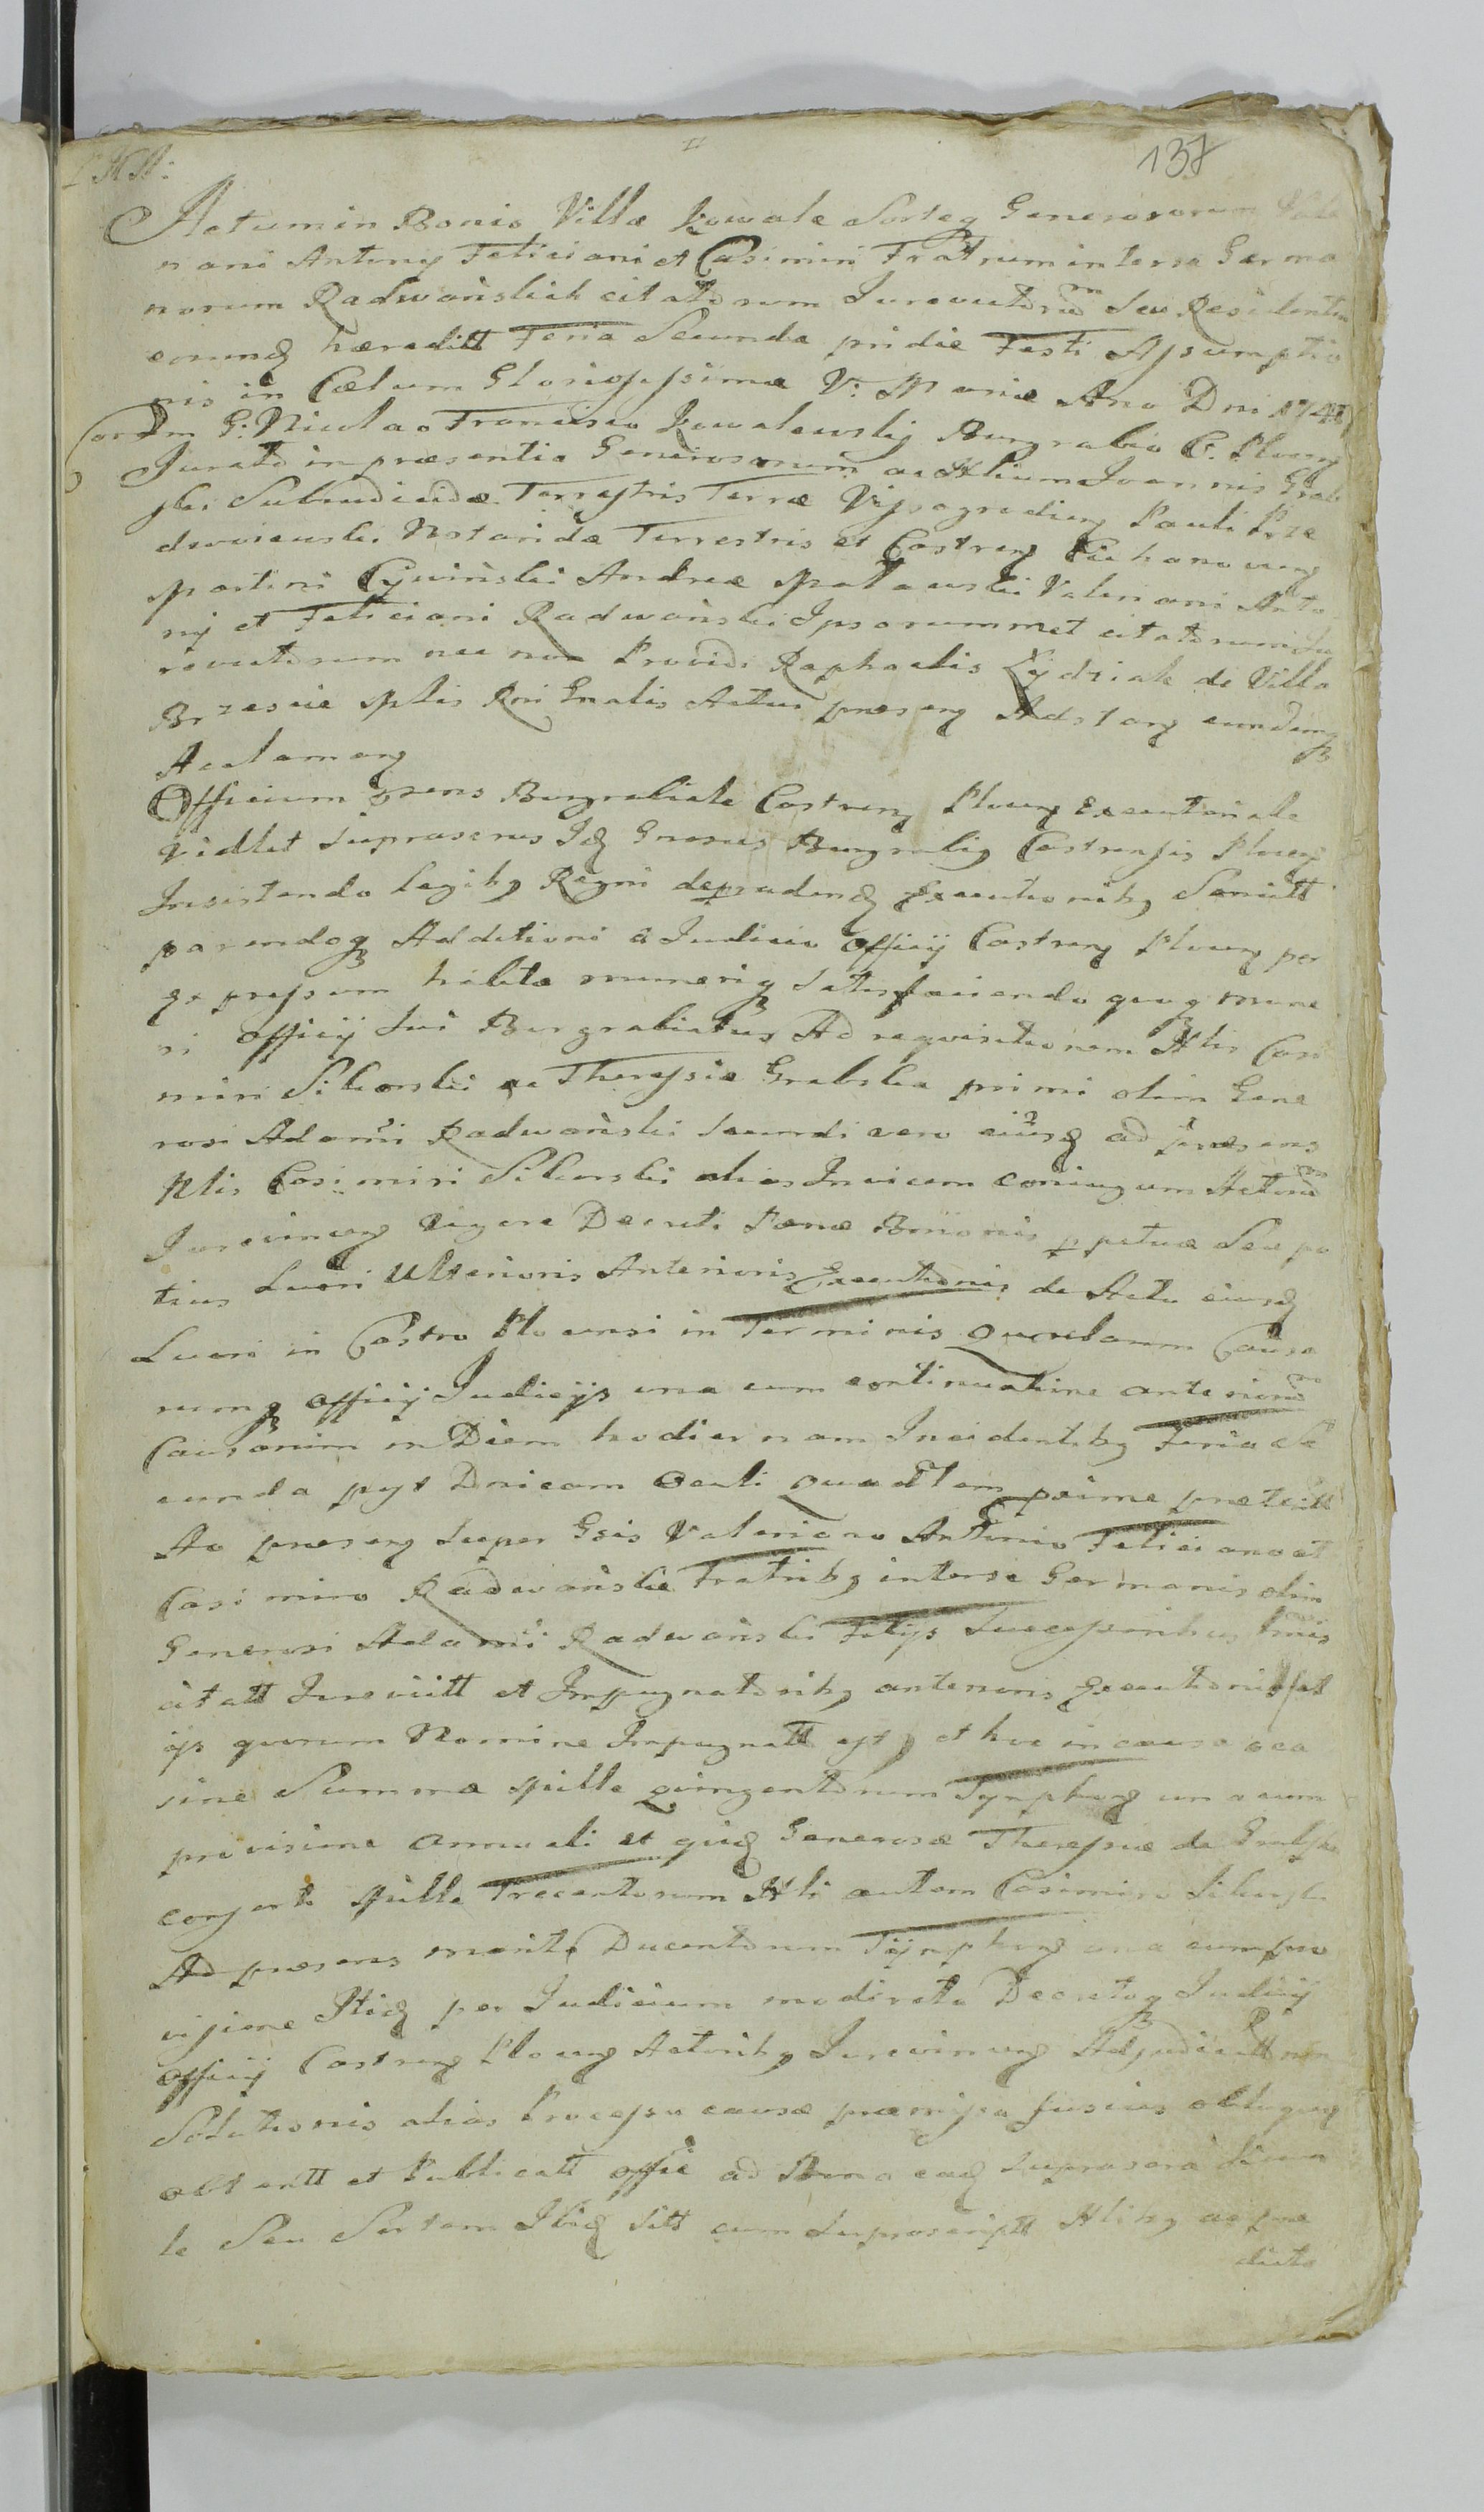 137
Actum in Bonis Villæ Kowale Sorteq Generosorum Vale
riani Antonij Feliciani et Casimiri Fratrum inter se Germa
norum Radwańskich citatorum Jurevictorum Seu Residentia
eorumq hæreditt Feria Secunda pridie Festi Assumptio
nis in Cœlum Gloriosissimæ V: Mariæ Ano Dni 174
Coram G: Nicolao Francisco Kowalewskij Burgrabio C. Plocen
Jurato in præsentia Generosorum ac Nlium Joannis Grab
ski Subiudicidæ Terrestris Terræ Vyssogradien Pauli Prze
dwoiewski Notaridæ Terrestris et Castren Ciechanovien
Martini Cywiński Andreæ Makowski Valeriani Anto
nij et Feliciani Radwański Ipsorummet citatorum Ju
revictorum nec non Providi Raphaelis Zydziak de Villa
Brzescie Mlis Rni Gnalis Actui præsen Adstan eundemq
Acclaman
Officium præns Burgrabiale Castren Plocen Executoriale
Vidlet suprascrus Idq Gnosus Burgrabiq Castrensis Plocen
Insistendo Legibq Regni de pradenq Executionibq Sancitt
parendoq Additioni a Judicio Officij Castren Plocen per
expressum habitæ munerisq satisfaciendo quoq mune
ri officij sui Burgrabiatus Ad requisitionem Nlis Casi
miri Sikorski ac Theressiæ Grabska primi olim Gene
rosi Adami Radwański secundi vero eiusq ad præsens
Nlis Casimiri Sikorski alias Invicem coniugum Actorum
Jurevincen vigore Decreti Pœnæ Bnionis ppetuæ Seu po
tius Lucri Ulterioris Anterioris Executionis de Actu eiusq
Lucri in Castro Plocensi in Terminis Querelarum Causa
rumq officij Judicijs una cum continuatione anteriorum
Causarum in Diem hodiernam Incidentibq Feria Se
cunda post Dnicam Oculi Quadrlem proxime præteritt
Ao præsen super Gsis Valeriano Antonio Feliciano et
Casimiro Radwańskie Fratribq inter se Germanis olim
Generosi Adami Radwański Filijs Successoribus
citatt Jurevictt et Impugnatoribq anterioris Executionis et
ijs quorum Nomine Impugnatt est, et hoc in causa occa
sione Summæ Mille quingentorum Tynphonq una cum
provisione annuali et quidq Generosæ Theressiæ de Grabskie
consorti Mille Trecentorum Nli autem Casimiro Sikorski
Ad præsens marito Ducentorum Tynphonq una cum pro
visione Itiq per Judicium moderata Decretoq Judicij
Officij Castren Plocen Actoribq Jurevincen Adjudicatt non
Solutionis alias Processu causæ præmissa fusius obloquen
obtentt et Publicatt offic ad Bona eadq suprascra Kowa
le Seu Sortem Ibidq sitt cum suprascriptt Nlibq ac præ
dicto